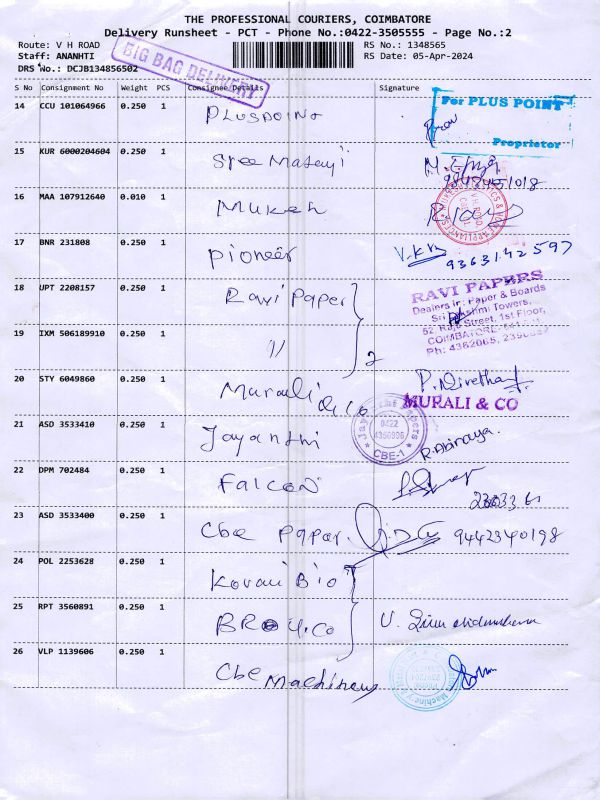 THE PROFESSIONAL COURIERS, COIMBATORE
Delivery Runsheet - PCT - Phone No.:0422-3505555 - Page No.:2
Route: V H ROAD
RS No.: 1348565
Staff: ANANHTI
RS Date: 05-Apr-2024
DRS No.: DCJB134856502
BIG BAG DELIVERY
S No Consignment No Weight PCS Consignee Details Signature
14 CCU 101064966 0.250 1 PLUSPOINT
For PLUS POINT
Proprietor
15 KUR 6000204604 0.250 1 Sree Matayi
16 MAA 107912640 0.010 1 Mukesh
17 BNR 231808 0.250 1 Pioneer
9363142597
18 UPT 2208157 0.250 1 Ravi Paper
RAVI PAPERS
Dealers in: Paper & Boards
Towers,
Street, 1st Floor,
COIMBATORE
Ph: 4382065,
19 IXM 506189910 0.250 1 11 2
20 STY 6049860 0.250 1 Murali & Co
MURALI & CO
21 ASD 3533410 0.250 1 Jayanthi
0422
4350906
CBE-1
R. Abinaya.
22 DPM 702484 0.250 1 Falcon
23 ASD 3533400 0.250 1 Cbe Paper. 9442340198
24 POL 2253628 0.250 1 Kovai Bio
25 RPT 3560891 0.250 1 BRO4.Co
26 VLP 1139606 0.250 1 Cbe Machinery